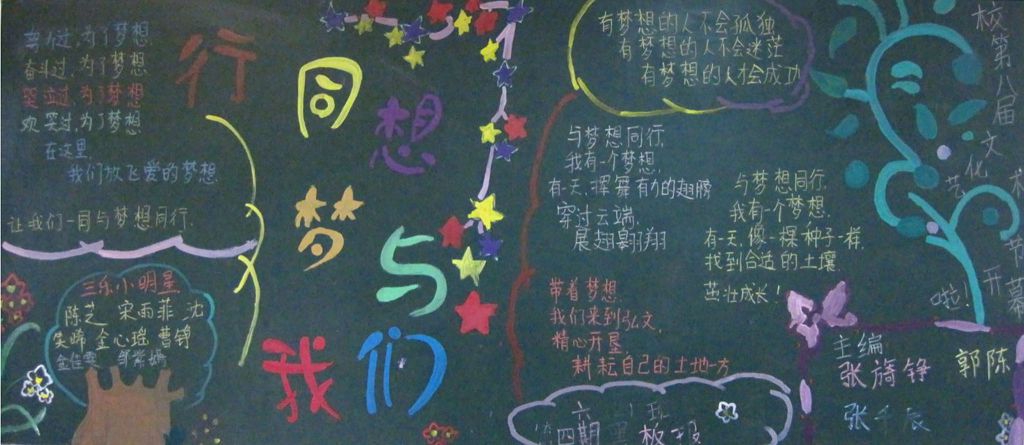 奋斗过,为了梦想
哭泣过,为了梦想
欢笑过,为了梦想
在这里,
我们放飞爱的梦想.
让我们一同与梦想同行.
三乐小明星
陈芝 宋雨菲 沈
金心瑶 曹铮
行
同
想
梦
与
们
我
有梦想的人不会孤独
有梦想的人不会迷茫
有梦想的人才会成功
与梦想同行,
我有一个梦想,
有一天,挥舞有力的翅膀
穿过云端,
展翅翱翔
与梦想同行,
我有一个梦想.
有一天,像一棵种子一样,
找到合适的土壤
茁壮成长!
带着梦想,
我们来到弘文,
精心开垦
耕耘自己的土地一方
第四期黑板报
校第八届文化艺术节开幕啦!
主编
张旖铮 郭陈
张千辰